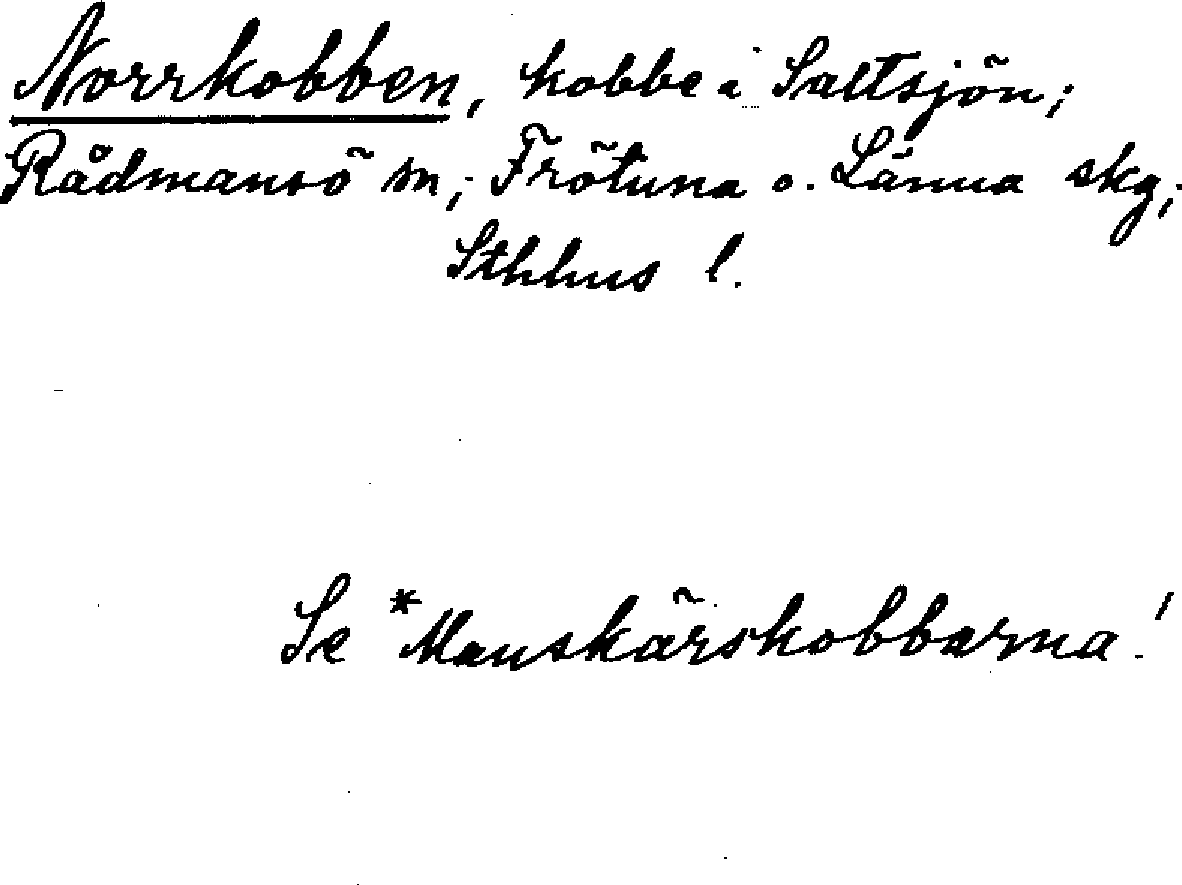 Norrkobben, kobbe i Saltsjön;
Rådmansö sn; Frötuna o. Länna skg;
Sthlms l.
Se *Manskärskobbarna!